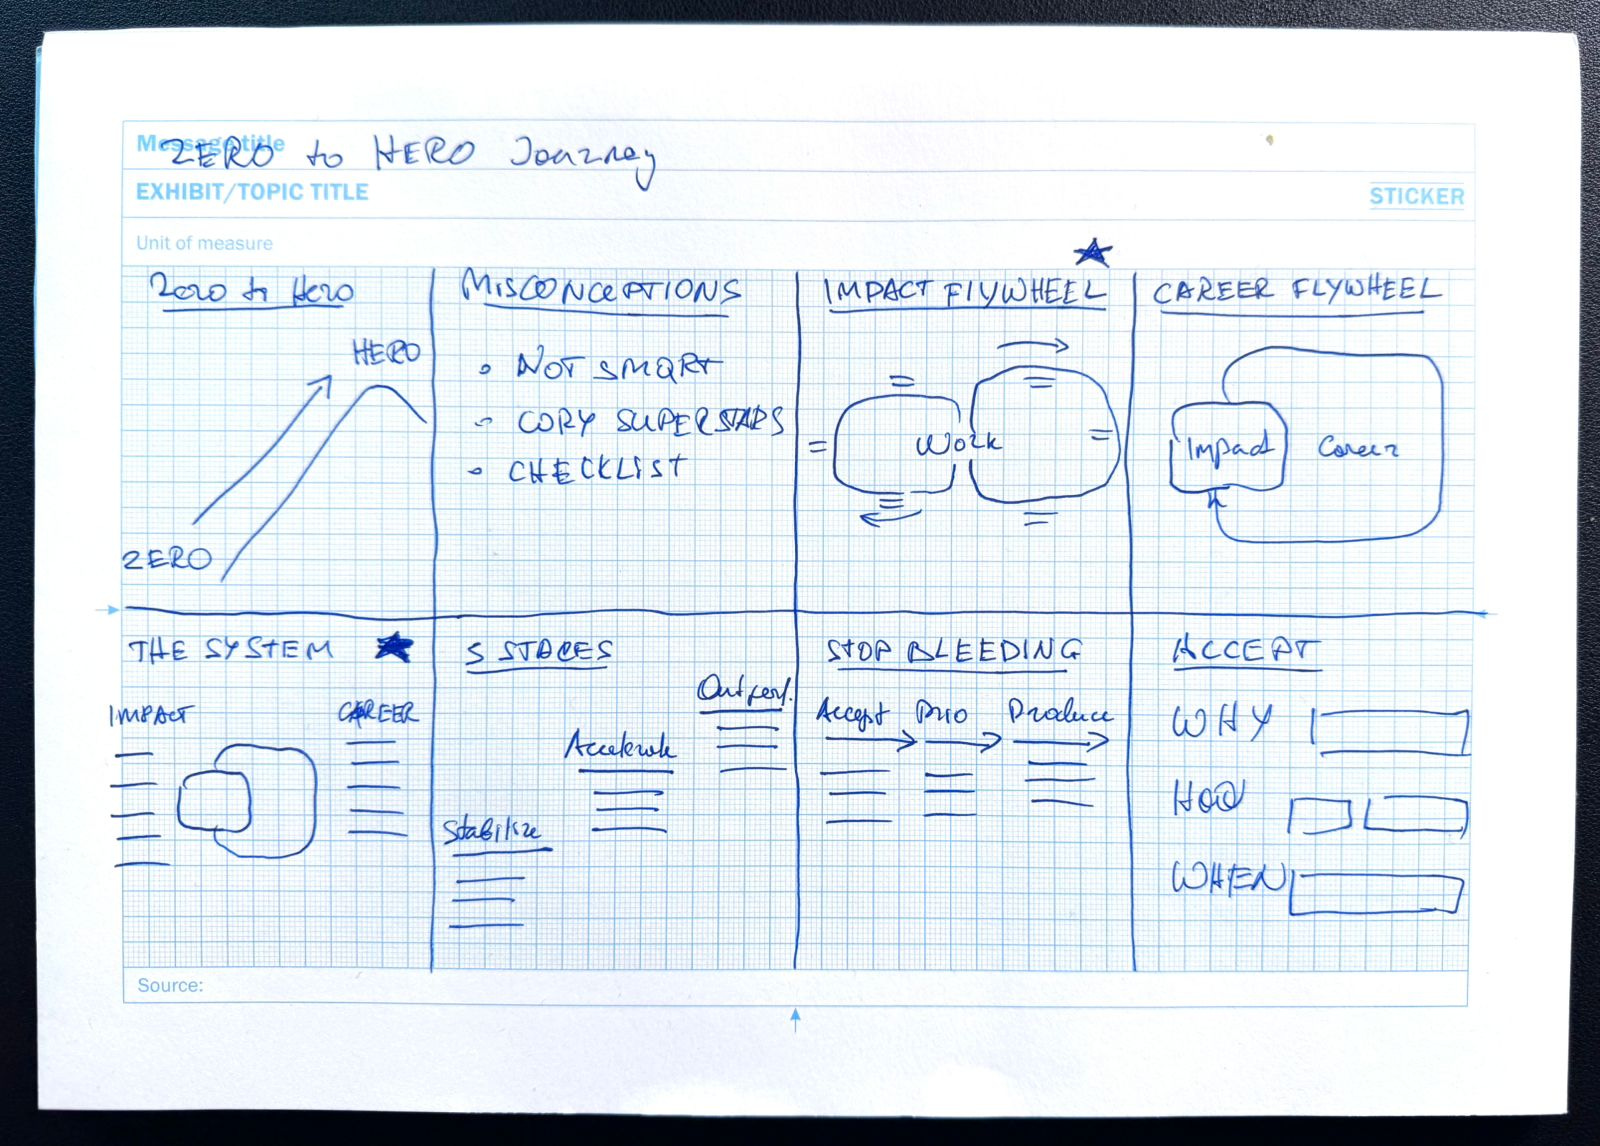 Message title
ZERO to HERO Journey
EXHIBIT/TOPIC TITLE
STICKER
Unit of measure
Zero to Hero
HERO
ZERO
MISCONCEPTIONS
• NOT SMART
- COPY SUPERSTARS
• CHECKLIST
IMPACT FLYWHEEL
Work
CAREER FLYWHEEL
Impact
Career
THE SYSTEM
IMPACT
CAREER
5 STAGES
Outperf.
Accelerate
Stabilize
STOP BLEEDING
Accept Prio Produce
ACCEPT
WHY
HOW
WHEN
Source: